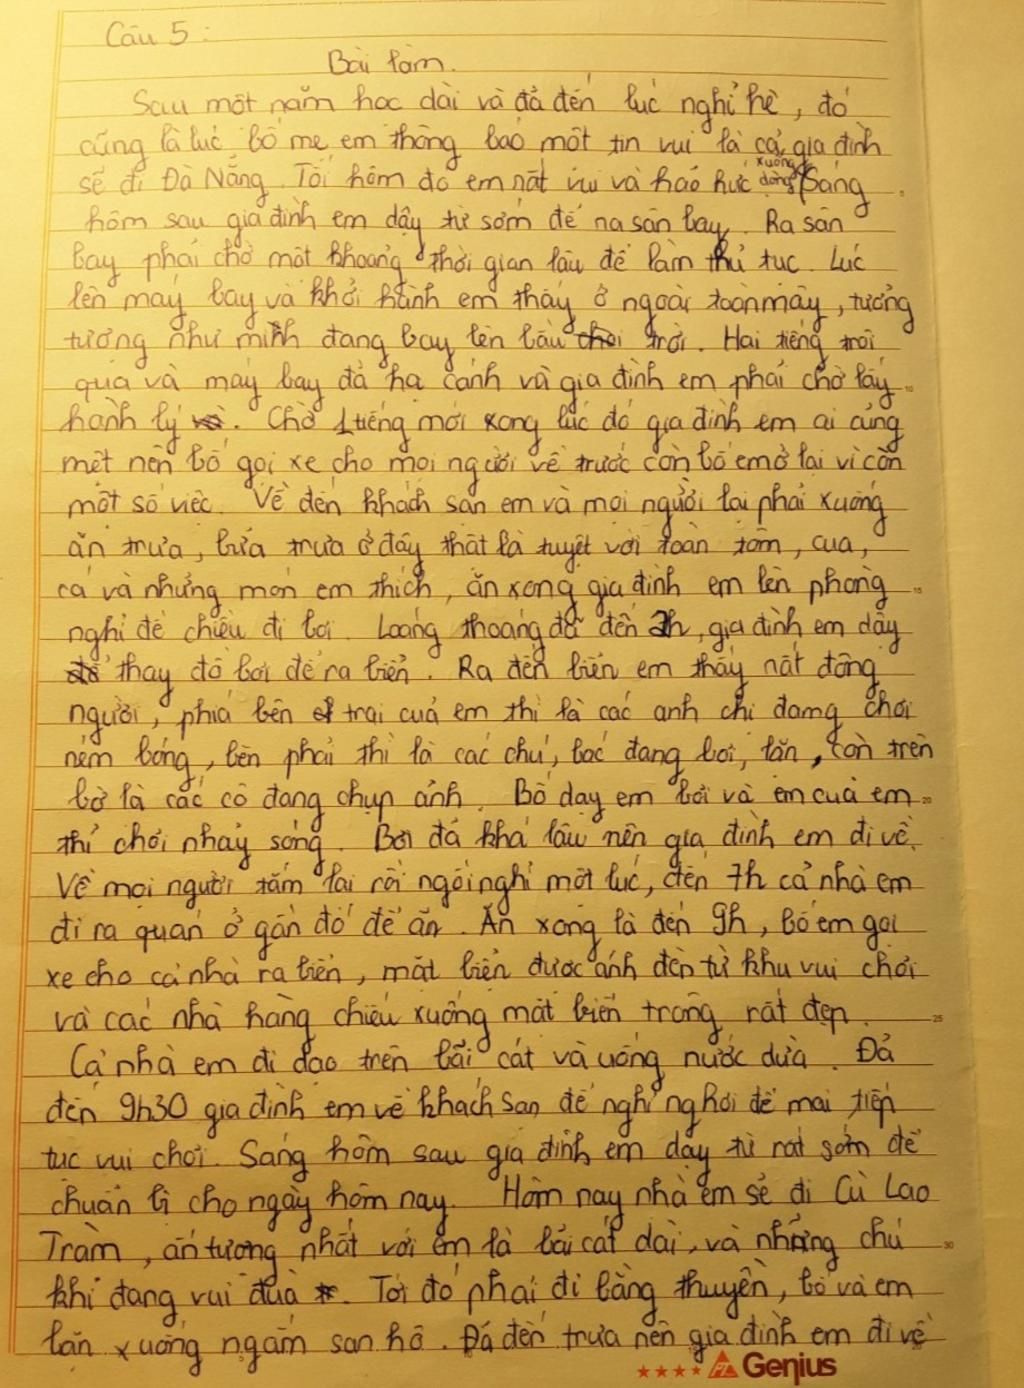 Câu 5:
Bài làm.
Sau một năm học dài và đã đến lúc nghỉ hè, đó
cũng là lúc bố mẹ em thông báo một tin vui là cả gia đình
sẽ đi Đà Nẵng. Tối hôm đó em nất vui và háo hức xuống dòng Sáng
hôm sau gia đình em dậy từ sớm để na sân bay. Ra sân
bay phải chờ một khoảng thời gian lâu để làm thủ tục. Lúc
lên máy bay và khởi hành em thấy ở ngoài toàn mây, tưởng
tượng như mình đang bay lên bầu trời. Hai tiếng trôi
qua và máy bay đã hạ cánh và gia đình em phải chờ lấy
hành lý. Chờ 1 tiếng mới xong lúc đó gia đình em ai cũng
mệt nên bố gọi xe cho mọi người về trước còn bố em ở lại vì còn
một số việc. Về đến khách sạn em và mọi người lại phải xuống
ăn trưa, bữa trưa ở đây thật là tuyệt vời toàn tôm, cua,
cá và những món em thích, ăn xong gia đình em lên phòng
nghỉ để chiều đi bơi. Loáng thoáng đã đến 2h, gia đình em dậy
thay đồ bơi để ra biển. Ra đến biển em thấy nất đông
người, phía bên trái của em thì là các anh chị đang chơi
ném bóng, bên phải thì là các chú, bác đang bơi, lặn, còn trên
bờ là các cô đang chụp ảnh. Bố dạy em bơi và em của em
thì chơi nhảy sóng. Bơi đã khá lâu nên gia đình em đi về.
Về mọi người tắm lại rồi ngồi nghỉ một lúc, đến 7h cả nhà em
đi ra quán ở gần đó để ăn. Ăn xong là đến 9h, bố em gọi
xe cho cả nhà ra biển, mặt biển được ánh đèn từ khu vui chơi
và các nhà hàng chiếu xuống mặt biển trông rất đẹp.
Cả nhà em đi dạo trên bãi cát và uống nước dừa. Đã
đến 9h30 gia đình em về khách sạn để nghỉ nghơi để mai tiếp
tục vui chơi. Sáng hôm sau gia đình em dậy từ rất sớm để
chuẩn bị cho ngày hôm nay. Hôm nay nhà em sẽ đi Cù Lao
Tràm, ấn tượng nhất với em là bãi cát dài, và những chú
khỉ đang vui đùa. Tới đó phải đi bằng thuyền, bố và em
lặn xuống ngắm san hô. Đã đến trưa nên gia đình em đi về
PT Genius